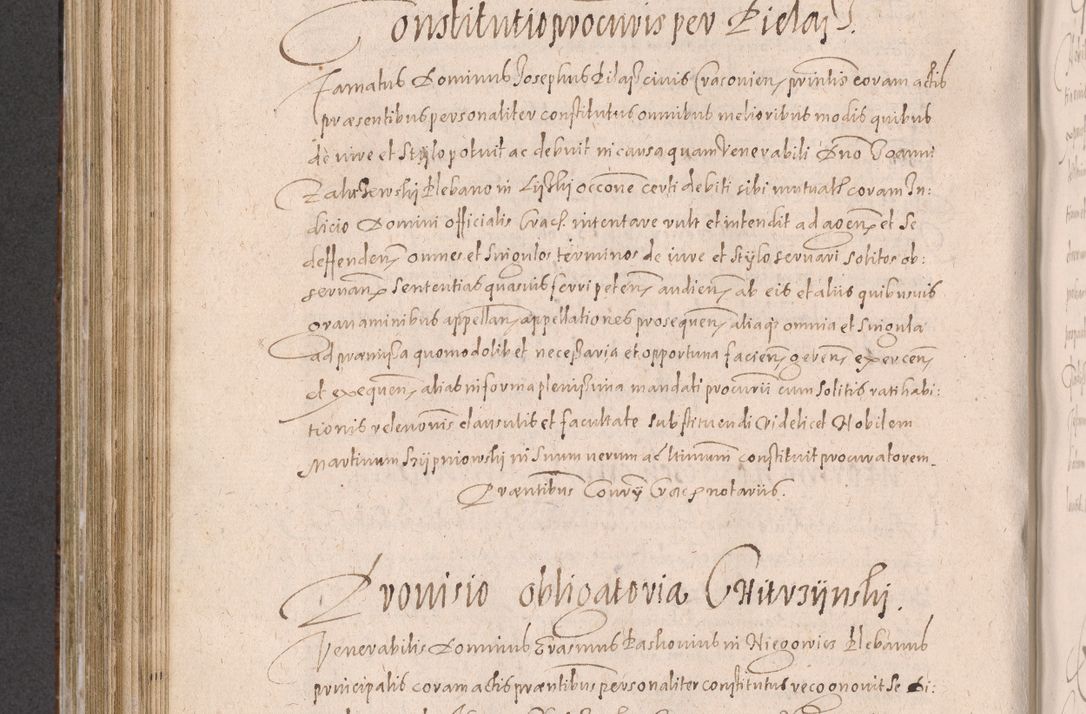 Constitutio procuris per Pielasz.
Famatus Dominus Josephus Pilasz civis Cracovien, principalis coram actis
præsentibus personaliter constitutus omnibus melioribus modis quibus
de iure et stylo potuit ac debuit in causa quam Venerabili Dno Joanni
Zakrzewskij Plebano in Lijszkj occone certi debiti sibi mutuatj coram Ju:
dicio Domini officialis Crac. intentare vult et intendit ad agen, et se
deffenden, omnes et singulos terminos de iure et stijlo servari solitos ob:
servan, sententias quasvis ferri peten, audien, ab eis et aliis quibusvis
gravaminibus appellan, appellationes prosequen, aliaq omnia et singula
ad præmissa quomodolibet necessaria et opportuna facien, geren, exercen,
et exequen, alias in forma plenissima mandati procurii cum solitis ratihabi:
tionis relevonis clausulis et facultate substituendi Videlicet Nobilem
Martinum Szijpniowskij in suum verum ac ltimum constituit procuratorem.
Præntibus Conry Crac notariis.
Provisio obligatoria Chitrzijnskj.
Venerabilis Dominus Erasmus Paskovius in Niegowicz Plebanus
principalis coram actis præntibus personaliter constitutus recognovit se di: